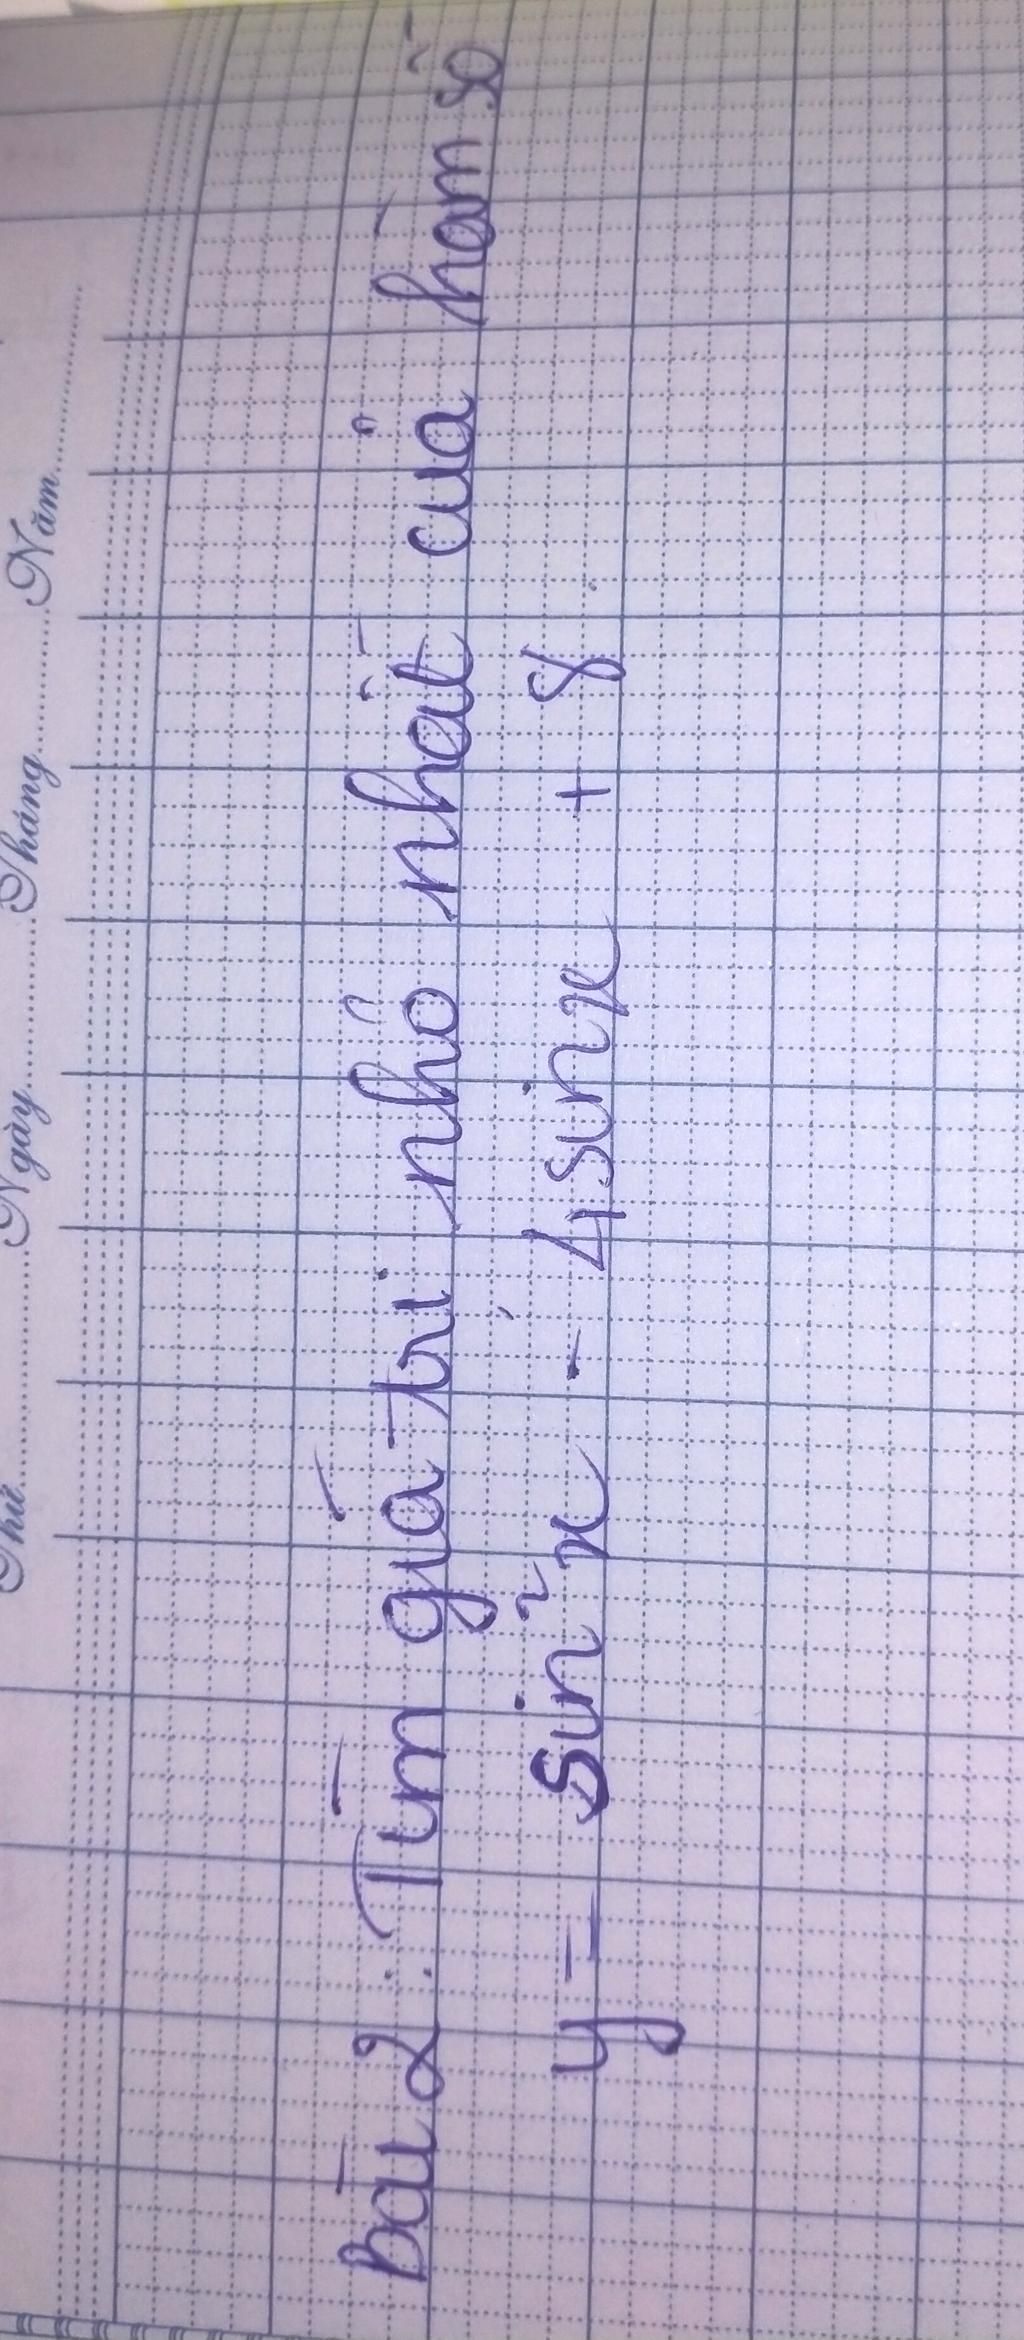 Thứ..........Ngày..........Tháng..........Năm..........
Bài 2: Tìm giá trị nhỏ nhất của hàm số
y = sin²x - 4sinx + 8